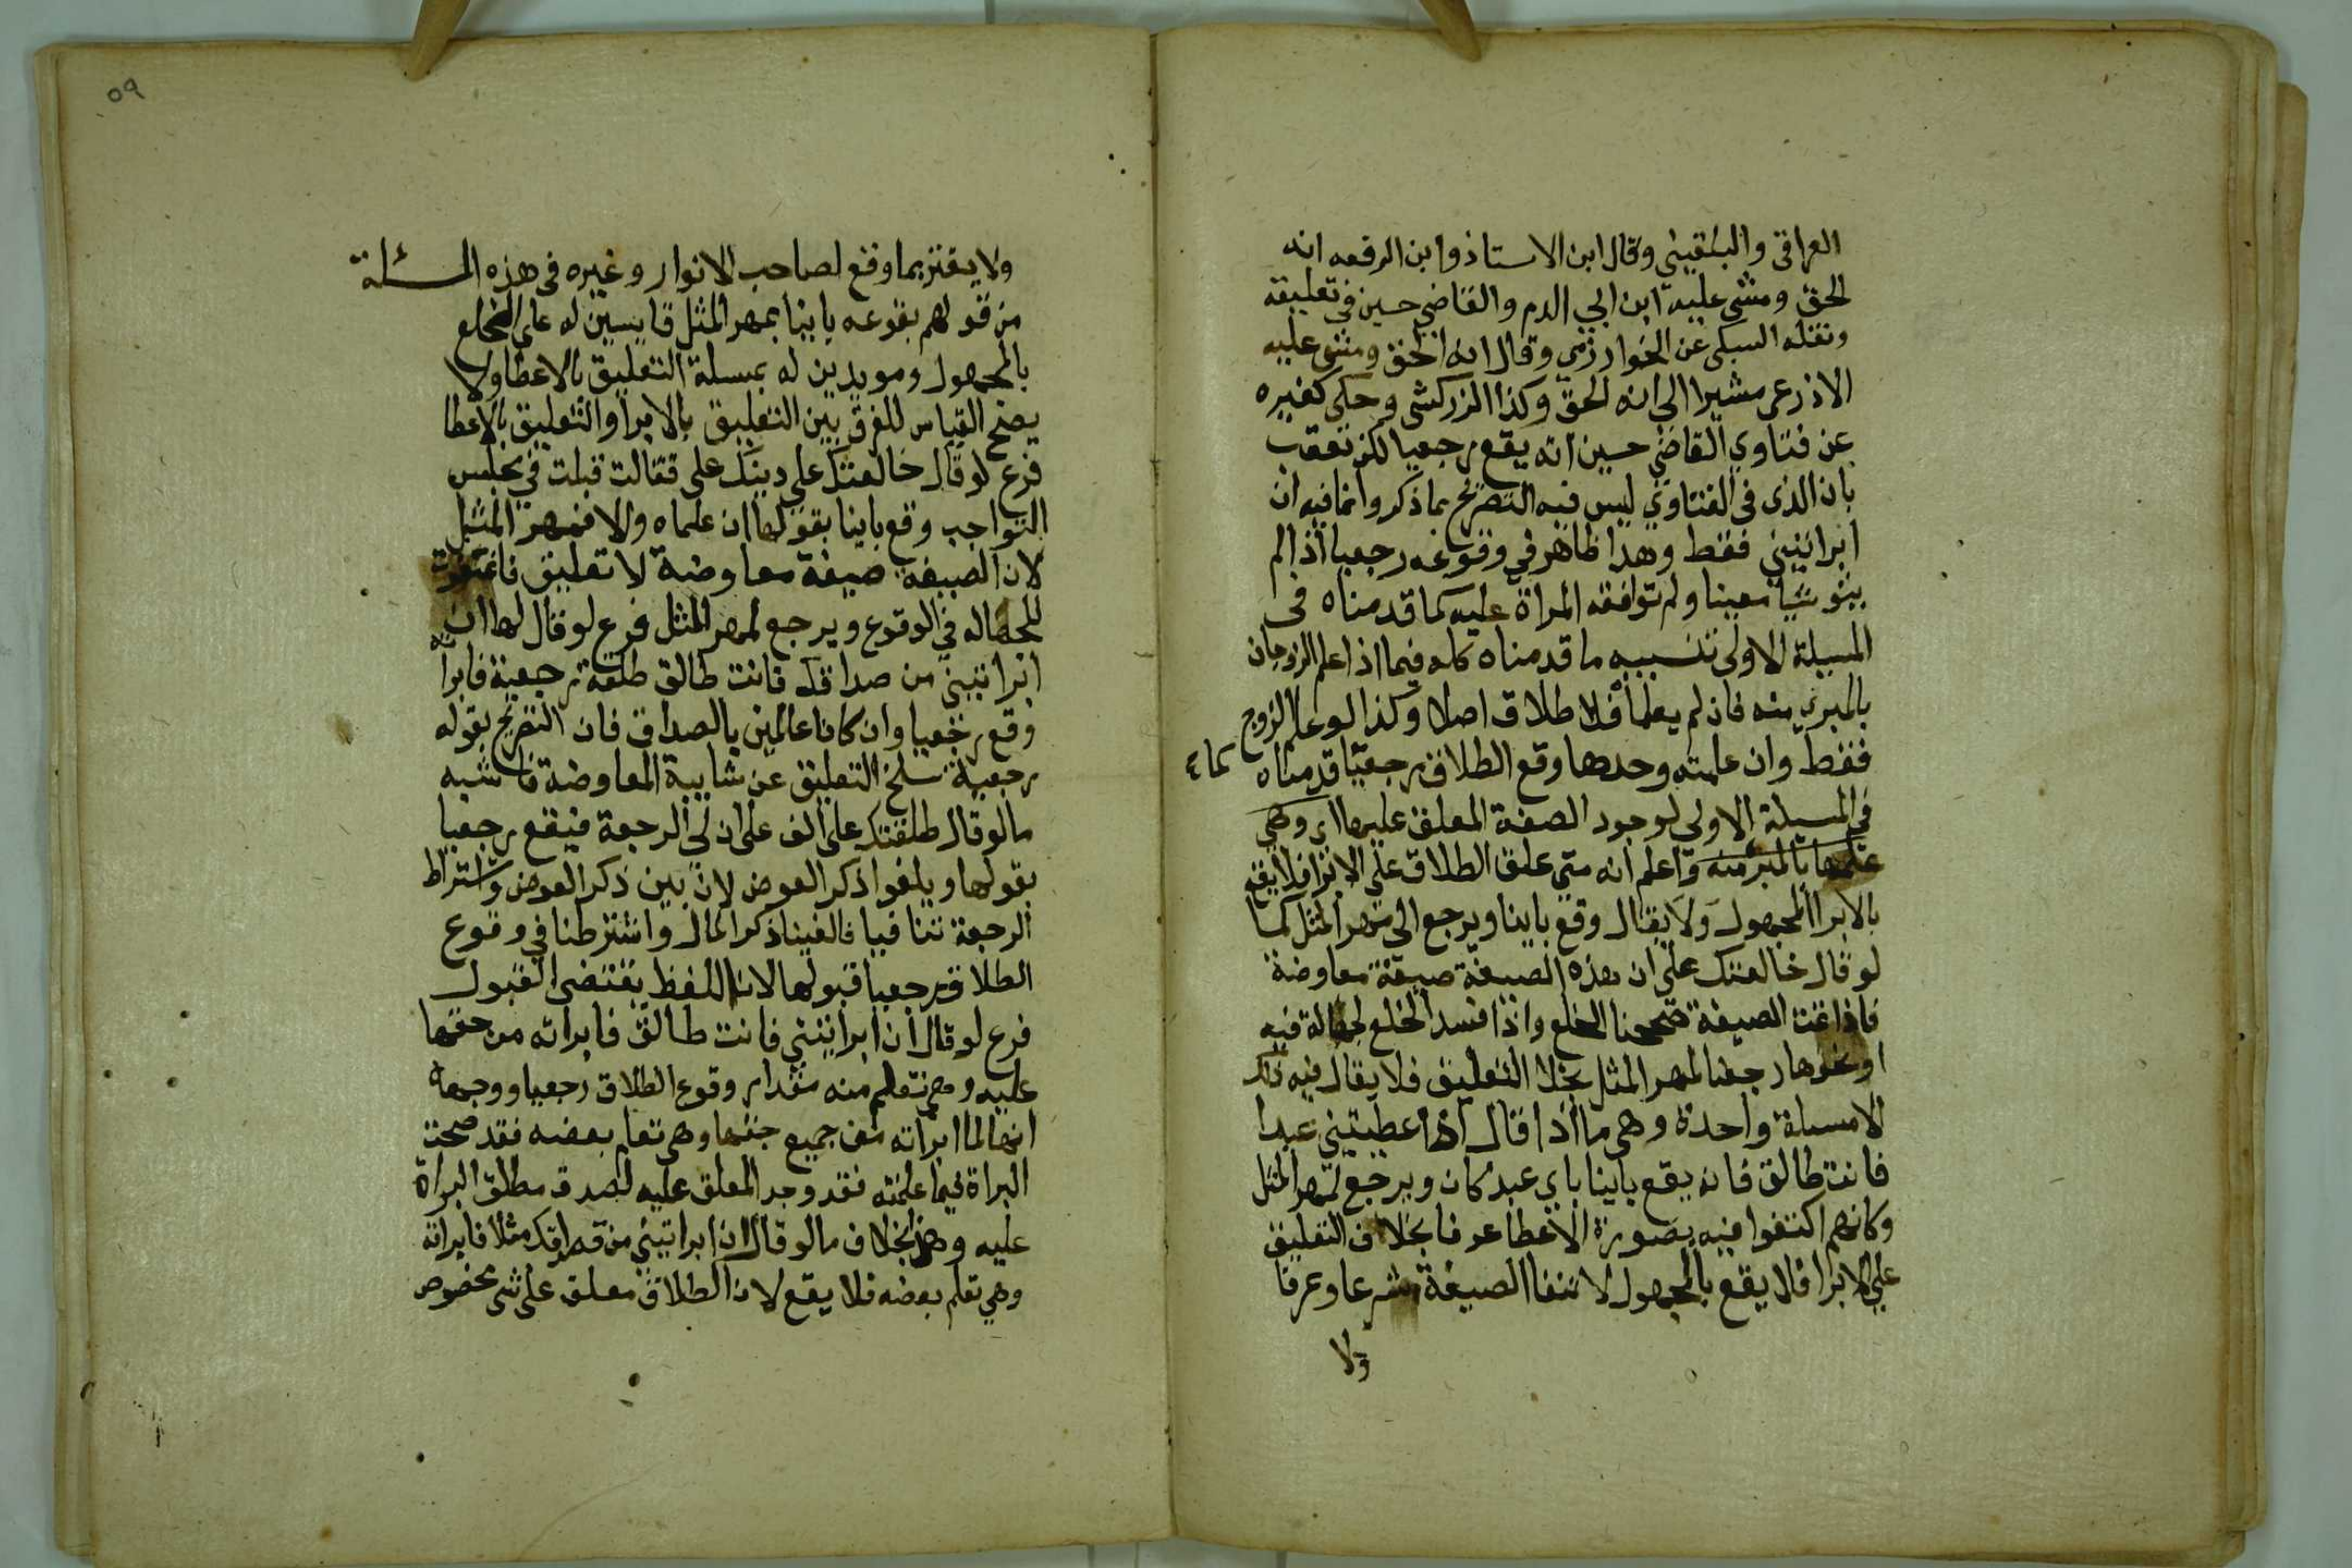 العراقي والبلقيني وقال ابن الاستاذ وابن الرفعه انه
الحق ومشى عليه ابن ابي الدم والقاضي حسين في تعليقه
ونقله السبكي عن الخوارزمي وقال انه الحق ومشى عليه
الاذرعى مشيرا الى انه الحق وكذا الزركشى وحكى كغيره
عن فتاوي القاضي حسين انه يقع رجعيا لكن تعقب
بان الذى في الفتاوي ليس فيه التصريح بما ذكر وانما فيه ان
ابراتيني فقط وهذا ظاهر في وقوعه رجعيا اذا لم
ينو شيا معينا ولم توافقه المراة عليه كما قدمناه في
المسيلة الاولى تنبيه ما قدمناه كله فيما اذا علم الزوجان
بالمبري منه فان لم يعلما فلا طلاق اصلا وكذا لو علم الزوج
فقط وان علمته وحدها وقع الطلاق رجعيا قدمناه كما
في المسيلة الاولى لوجود الصفة المعلق عليها اي وهي
علمها بالمبر منه واعلم انه متى علق الطلاق على الابرا فلا يقع
بالابرا المجهول ولا يقال وقع باينا ويرجع الى مهر المثل كما
لو قال خالعتك على ان هذه الصيغة صيغة معاوضة
فاذا تمت الصيغة صححنا الخلع واذا فسد الخلع لجهالة فيه
او نحوها رجعنا لمهر المثل بخلا التعليق فلا يقال فيه ذلك
الا مسيلة واحدة وهى ما اذا قال ان اعطيتيني عبدا
فانت طالق فانه يقع باينا باي عبد كان ويرجع لمهر المثل
وكانهم اكتفوا فيه بصورة الاعطا عرفا بخلاف التعليق
على الابرا فلا يقع بالمجهول لانتفا الصيغة شرعا وعرفا
ولا
٥٩
ولا يغتر بما وقع لصاحب الانوار وغيره في هذه المسئلة
من قولهم بقوعه باينا بمهر المثل قايسين له على الخلع
بالمجهول ومويدين له بمسلة التعليق بالاعطا ولا
يصح القياس للفرق بين التعليق بالابرا والتعليق بالاعطا
فرع لو قال خالعتك على دينك على فقالت قبلت في مجلس
التواجب وقع باينا بقولها ان علماه والا فمهر المثل
لان الصيغه صيغة معاوضة لا تعليق فاغتفرت
للجهاله في الوقوع ويرجع لمهر المثل فرع لو قال لها ان
ابراتيني من صداقك فانت طالق طلقة رجعية فابراته
وقع رجعيا وان كانا عالمين بالصداق فان التصريح بقوله
رجعية سلخ التعليق عن شايبة المعاوضة فاشبه
ما لو قال طلقتك على الف على ان لي الرجعة فيقع رجعيا
بقولها ويلغوا ذكر العوض لان بين ذكر العوض واشتراط
الرجعة تنافيا فالغينا ذكر المال واشترطنا في وقوع
الطلاق رجعيا قبولها لان اللفظ يقتضى القبول
فرع لو قال ان ابراتيني فانت طالق فابراته من حقها
عليه وهي تعلم منه مقدار وقوع الطلاق رجعيا ووجهه
انها لما ابراته من جميع حقها وهي تعلم بعضه فقد صحت
البراة فيما علمته فقد وجد المعلق عليه لصدق مطلق البراة
عليه وهذا بخلاف ما لو قال ان ابراتيني من صداقك مثلا فابراته
وهي تعلم بعضه فلا يقع لان الطلاق معلق على شى مخصوص